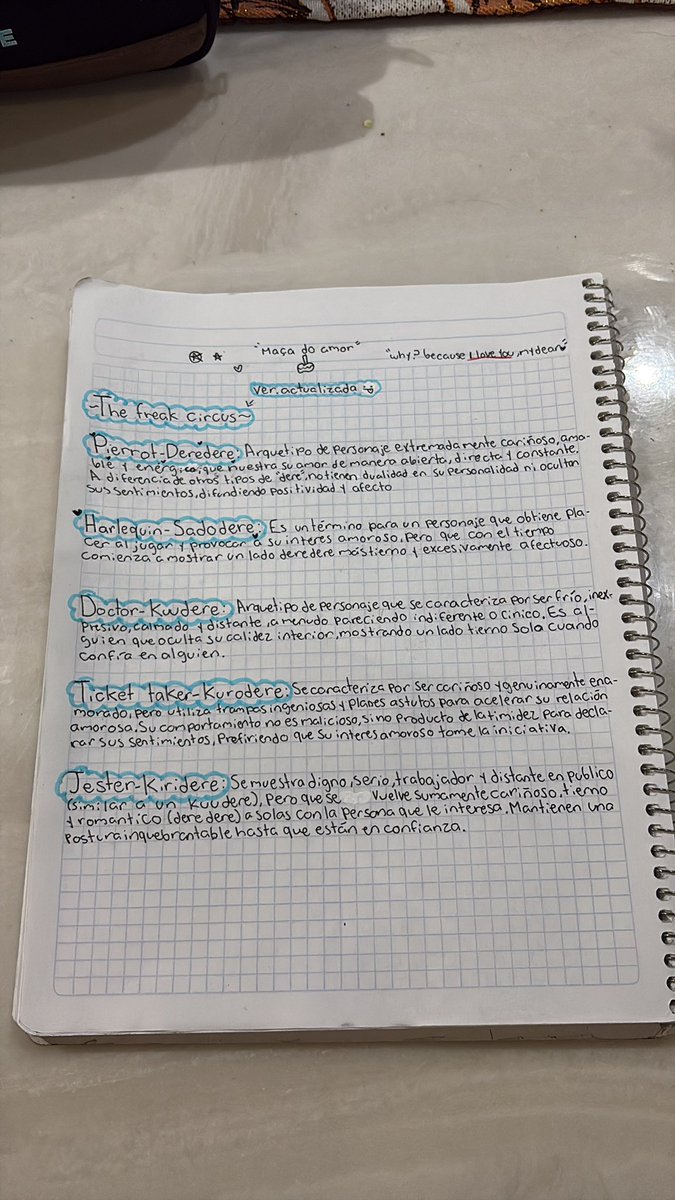 E
"Maça do amor"
"why? because I love You, my dear"
ver. actualizada
~The freak circus~
Pierrot-Deredere: Arquetipo de personaje extremadamente cariñoso, ama-
ble y energico, que muestra su amor de manera abierta, directa y constante.
A diferencia de otros tipos de "dere", no tienen dualidad en su personalidad ni ocultan
sus sentimientos, difundiendo positividad y afecto
Harlequin-Sadodere: Es un término para un personaje que obtiene pla-
cer al jugar y provocar a su interes amoroso, pero que con el tiempo
comienza a mostrar un lado deredere más tierno y excesivamente afectuoso.
Doctor-Kuudere: Arquetipo de personaje que se caracteriza por ser frío, inex-
presivo, calmado y distante, a menudo pareciendo indiferente o cinico. Es al-
guien que oculta su calidez interior, mostrando un lado tierno solo cuando
confía en alguien.
Ticket taker-Kurodere: Se caracteriza por ser cariñoso y genuinamente ena-
morado, pero utiliza trampas ingeniosas y planes astutos para acelerar su relación
amorosa. Su comportamiento no es malicioso, sino producto de la timidez para decla-
rar sus sentimientos, prefiriendo que su interes amoroso tome la iniciativa.
Jester-Kiridere: Se muestra digno, serio, trabajador y distante en publico
(similar a un kuudere), pero que se vuelve sumamente cariñoso, tierno
y romantico (dere dere) a solas con la persona que le interesa. Mantienen una
postura inquebrantable hasta que están en confianza.